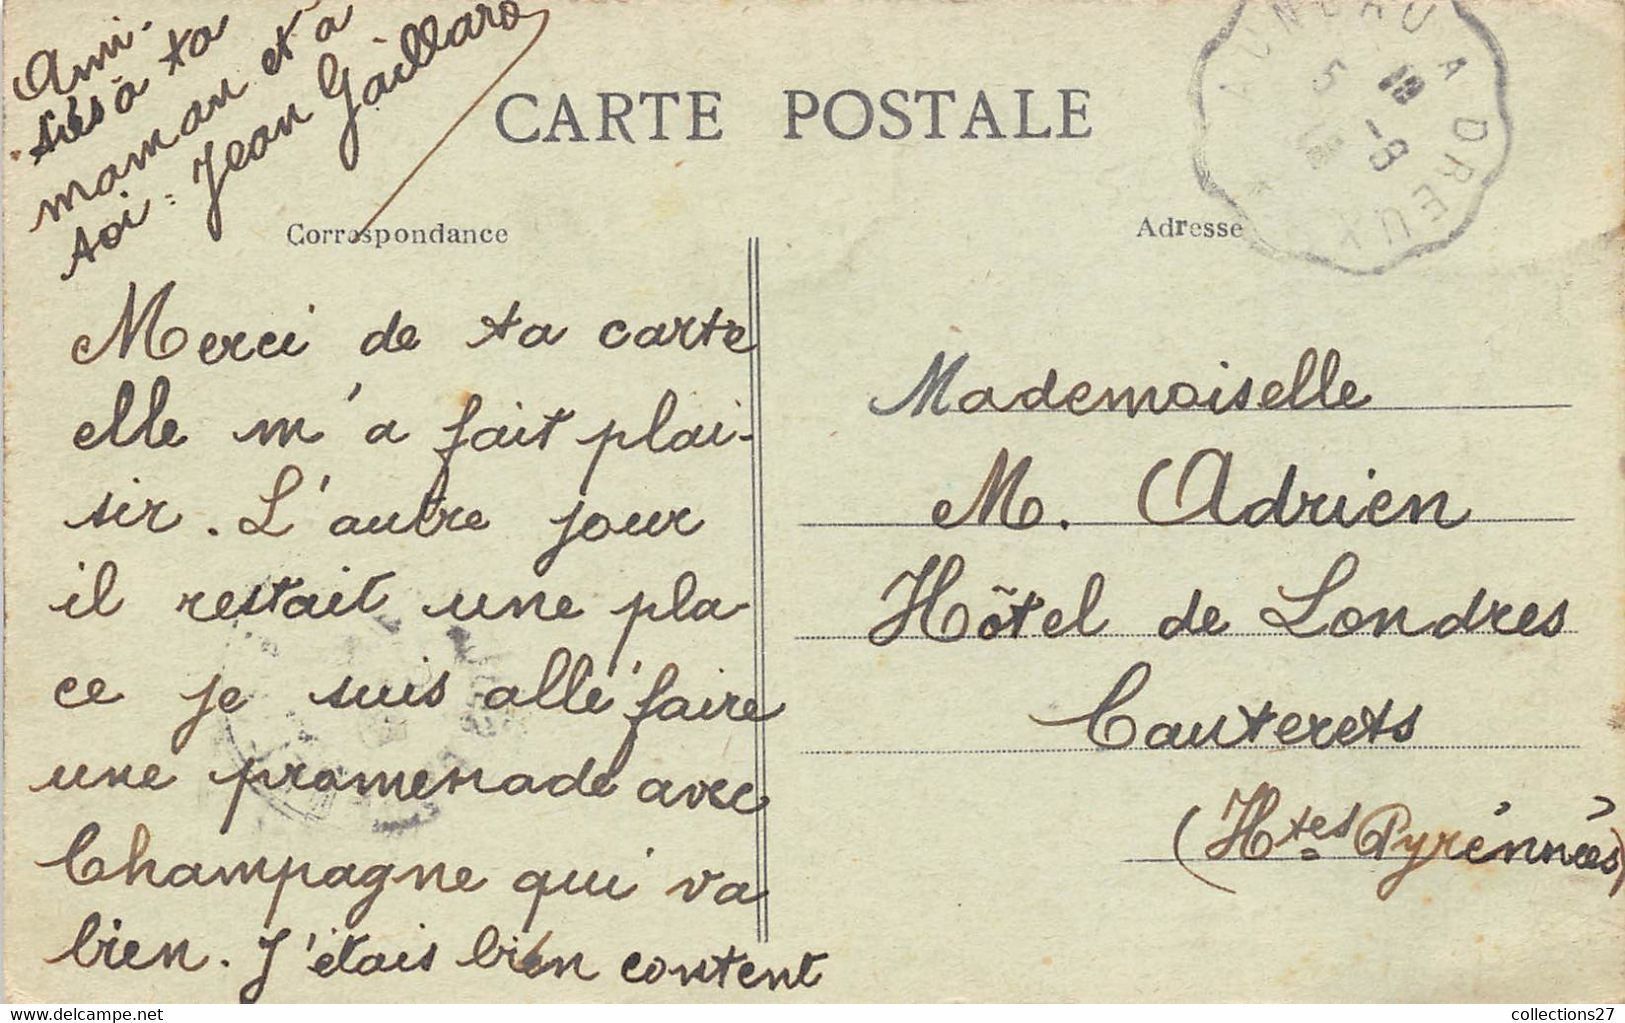 Ami-
tiés à ta
maman et à
toi = Jean Gaillard
CARTE POSTALE
Correspondance
Adresse
AUNEAU A DREUX
5 - 8
Merci de ta carte
elle m'a fait plai-
sir. L'autre jour
il restait une pla-
ce je suis allé faire
une promenade avec
Champagne qui va
bien. J'étais bien content
Mademoiselle
M. Adrien
Hôtel de Londres
Cauterets
(Htes Pyrénnées)
collections27